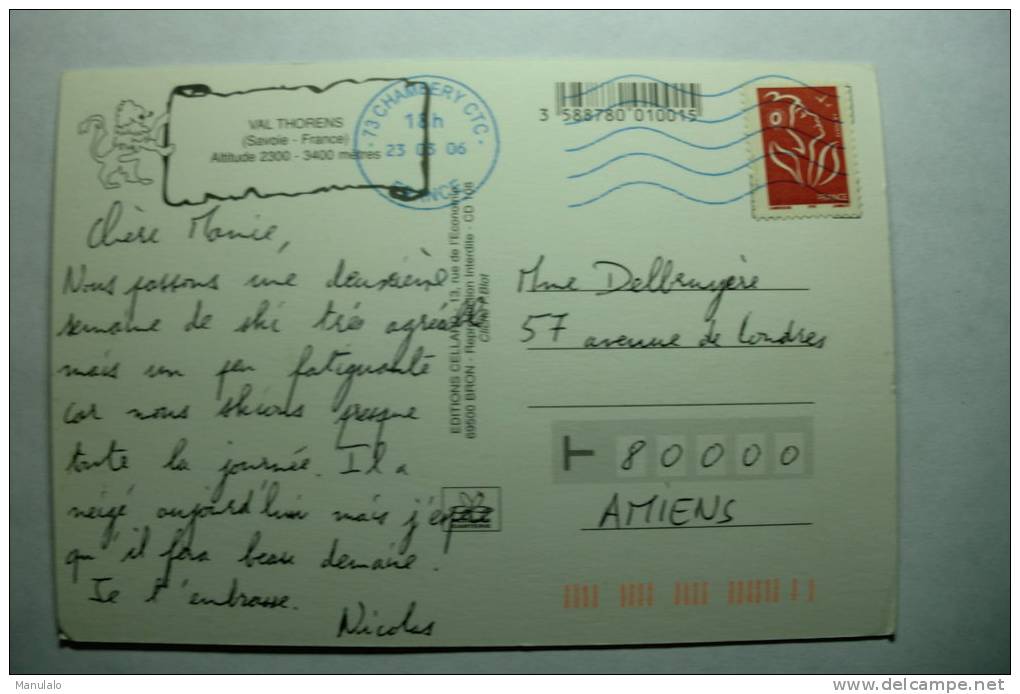 VAL THORENS
(Savoie - France)
Altitude 2300 - 3400 mètres
73 CHAMBERY CTC
18 h
23 03 06
FRANCE
3 588780 010015
FRANCE
Chère Mamie,
Nous passons une deuxième
semaine de ski très agréable
mais un peu fatiguante
car nous skions presque
toute la journée. Il a
neigé aujourd'hui mais j'espère
qu'il fera beau demain.
Je t'embrasse.
Nicolas
EDITIONS CELLARD - 13, rue de l'Economie
69500 BRON - Reproduction Interdite - CD 108
Cliché P. Blot
Mme Delbruyère
57 avenue de Londres
80000
AMIENS
Manulalo
delcampe.net